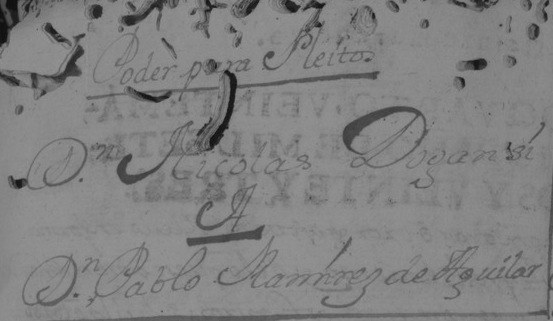 Poder para Pleito.
D.n Nicolas Dogan si
A
D.n Pablo Ramirez de Aguilar